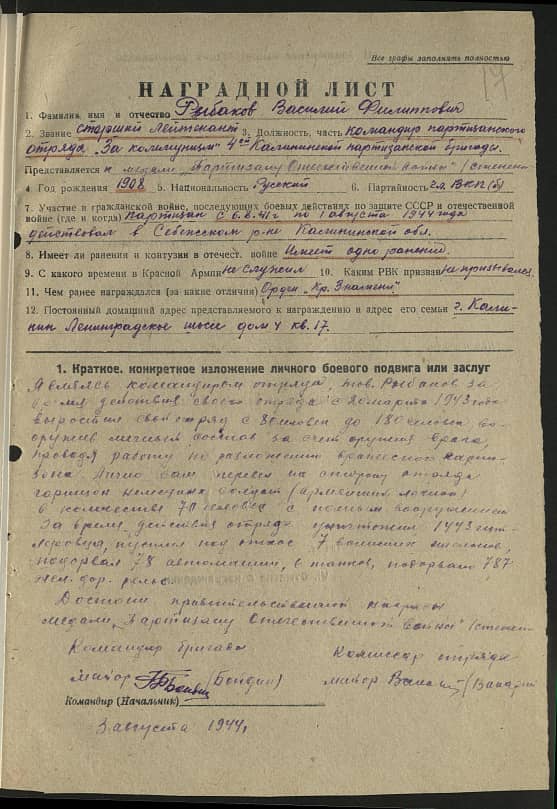 Все графы заполнять полностью
17
НАГРАДНОЙ ЛИСТ
1. Фамилия, имя и отчество Рыбаков Василий Филиппович
2. Звание старший лейтенант 3. Должность, часть командир партизанского
отряда "За коммунизм" 4ой Калининской партизанской бригады.
Представляется к медали "Партизану Отечественной войны" I степени
4. Год рождения 1908 5. Национальность Русский 6. Партийность чл. ВКП(б)
7. Участие в гражданской войне, последующих боевых действиях по защите СССР и отечественной
войне (где и когда) партизан с 6.8.41г по 1 августа 1944 года
действовал в Себежском р-не Калининской обл.
8. Имеет ли ранения и контузии в отечест. войне Имеет одно ранение.
9. С какого времени в Красной Армии не служил 10. Каким РВК призван не призывался
11. Чем ранее награждался (за какие отличия) Орден "Кр. Знамени"
12. Постоянный домашний адрес представляемого к награждению и адрес его семьи г. Кали-
нин Ленинградское шоссе дом 4 кв. 17.
1. Краткое, конкретное изложение личного боевого подвига или заслуг
Являясь командиром отряда, тов. Рыбаков за
время действия своего отряда с 20 марта 1943 года
вырастил свой отряд с 8 человек до 180 человек во-
оружив личный состав за счет оружия врага,
проводя работу по разложению вражеского гарни-
зона. Лично сам перевел на сторону отряда
гарнизон немецких солдат
в количестве 70 человек с полным вооружением
За время действия отряда уничтожено 1443 гит-
леровца, пустил под откос 7 воинских эшелонов,
подорвал 78 автомашин, танков, подорвано 787
жел. дор. рельс.
Достоин правительственной награды
медали "Партизану Отечественной войны" I степени
Командир бригады
комиссар отряда
майор (Бойдин)
майор
Командир (Начальник)
3 августа 1944г.